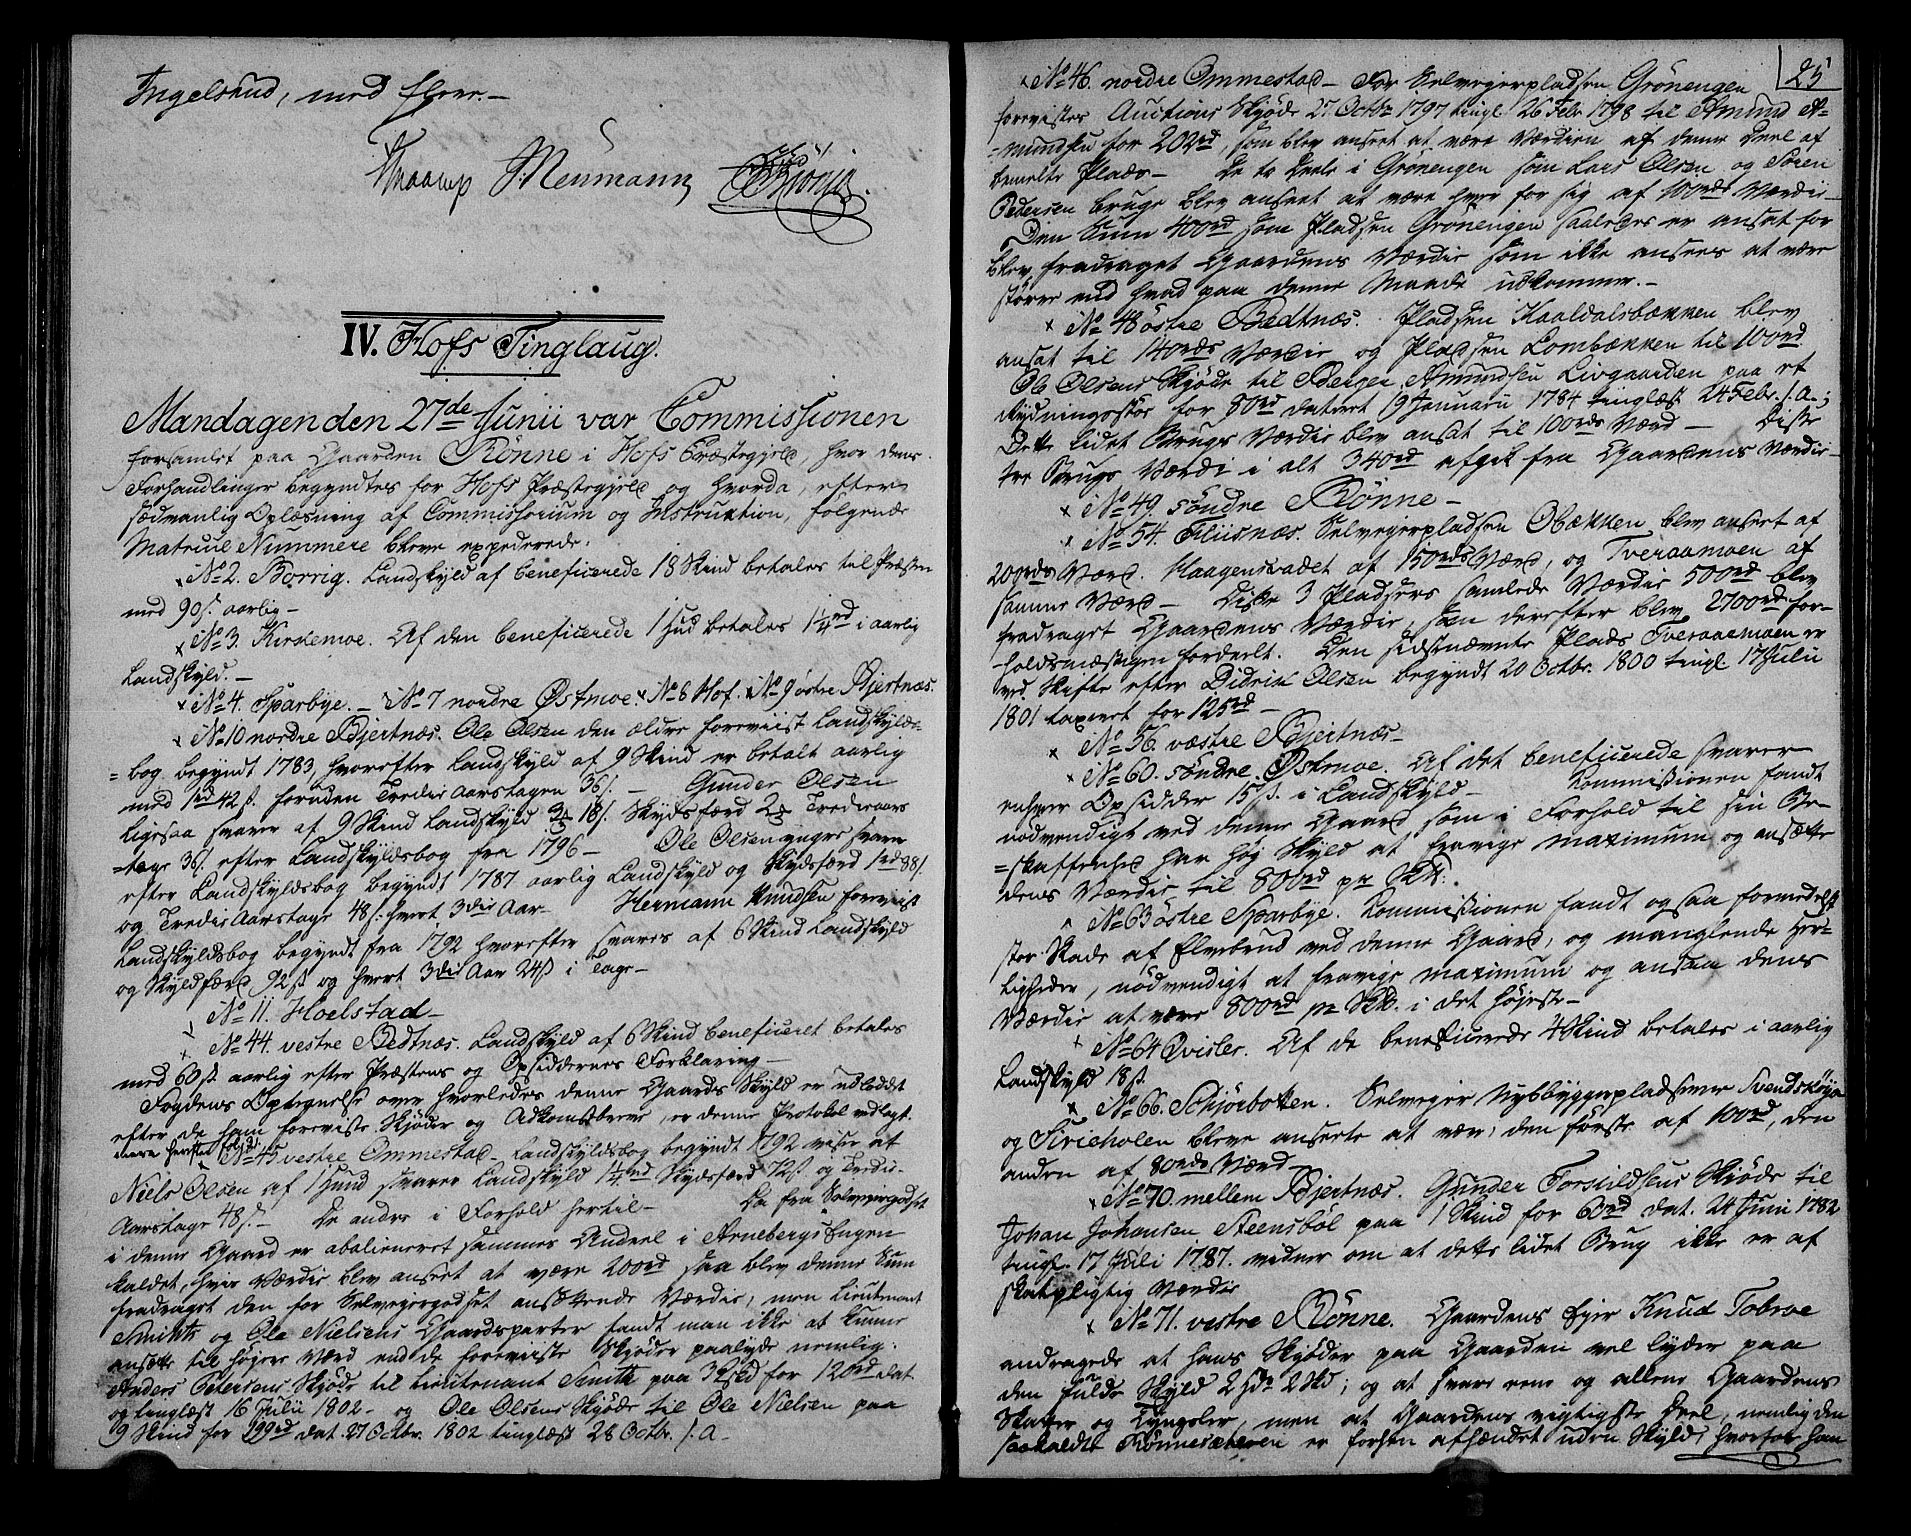 Ingelsrud, med flere.—
Knaarup Neumann Biønn
IV. Hofs Tinglaug.
Mandagen den 27de Junii var Commissionen
forsamlet paa Gaarden Rönne i Hofs Præstegjeld, hvor dens
Forhandlinger begyndtes for Hofs Præstegjeld og hvorda, efter
sædvanlig Oplæsning af Commissorium og Instruktion, følgende
Matricul Nummere bleve expederede:
No 2. Borrig. Landskyld af beneficerede 18 Skind betales til Præsten
med 90 s. aarlig—
No 3. Kirkemoe. Af den beneficerede 1 Hud betales 1¼ rd i aarlig
Landskyld.—
No 4. Sparbye.— No 7 nordre Østmoe. No 8 Hof. No 9 østre Bjertnæs.
No 10 nordre Bjertnæs. Ole Olsen den ældre foreviist Landskylds-
=bog begyndt 1783, hvorefter Landskyld af 9 Skind er betalt aarlig
med 1 rd 42 s. foruden Tredie Aarstagen 36 s.— Gunder Olsen
ligesaa svarer af 9 Skind Landskyld 18 s. Skydsfærd Trederaars
=tage 36 s. efter Landskyldsbog fra 1796— Ole Olsen yngre svarer
efter Landskyldsbog begyndt 1787 aarlig Landskyld og Skydsfærd 1 rd 88 s.
og Tredie Aarstage 48 s. hvert 3die Aar— Hermann Knudsen foreviist
Landskyldsbog begyndt fra 1792 hvorefter svares af 6 Skind Landskyld
og Skydsfærd 92 s. og hvert 3die Aar 24 s i Tage—
No 11. Hoelstad—
No 44. vestre Bedtnæs. Landskyld af 6 Skind beneficeret betales
med 60 s. aarlig efter Præstens og Opsiddernes Forklaring—
Fogdens Optegnelse over hvorledes denne Gaards Skyld er udloddet
efter de ham foreviste Skjøder og Adkomstbreve, er denne Protokol vedlagt.
No 45 vestre Ommestad. Landskyldsbog begyndt 1792 viser at
Niels Olsen af 1 Hund svarer Landskyld 1¼ rd Skydsfærd 72 s og Tredie-
Aarstage 48 s.— De andre i Forhold hertil— Da fra Selveiergodset
i denne Gaard er abalieneret sammes Andeel i Arnebergs Engen
kaldet, hvis Værdie blev anseet at være 200 rd saa blev denne Sum
fradraget den for Selveiergodset ansættende Værdie; men Lieutenant
Smith og Ole Nielsens Gaardsparter fandt man ikke at kunne
ansætte til høiere Værd end de foreviiste Skjøder paalyde nemlig:
Anders Petersens Skjøde til Lieutenant Smith paa 3 Skd for 120 rd dat
og tinglæst 16 Julii 1802— og Ole Olsens Skjøde til Ole Nielsen paa
9 Skind for 199 rd dat. 27 Octbr. 1802 tinglæst 28 Octbr. s. A.—
25
No 46. nordre Ommestad— For Selveierpladsen Grönengen
forevistes Auctions Skjøde 27 Octbr 1797 tingl. 26 Febr. 1798 til Amund A-
=mundsen for 202 rd, som blev anseet at være Værdien af denne Deel af
bemelte Plads— De to Deele i Grönengen som Lars Olsen og Sören
Pedersen bruge blev anseet at være hver for sig af 100 rds Værdie—
Den Sum 400 rd som Pladsen Grönengen saaledes er ansat for
blev fradraget Gaardens Værdie som ikke ansees at være
større end hvad paa denne Maade udkommer.—
No 48 østre Bedtnæs. Pladsen Kaaldalsbækken blev
ansat til 140 rds Værdie og Pladsen Lombækken til 100 rd
Ole Olsens Skjøde til Börger Amundsen Livgaarden paa et
Rydningsstör for 80 rd dateret 19 Januarii 1784 tinglæst 24 Febr. s. A.;
Dette lidet Brugs Værdie blev ansat til 100 rds Værd— Disse
tre Brugs Værdi i alt 340 rd afgik fra Gaardens Værdie—
No 49. söndre Rönne—
No 54. Fliisnæs. Selveierpladsen Obækken blev anseet af
200 rds Værd. Haagensvadet af 150 rds Værd, og Tveraamoen af
samme Værd— Disse 3 Pladsers samlede Værdie 500 rd blev
fradraget Gaardens Værdie, som derefter blev 2700 rd for-
holdsmæssigen fordeelt. Den sidstnævnte Plads Tveraaemoen er
ved Skifte efter Didrik Olsen begyndt 20 Octbr. 1800 tingl. 17 Julii
1801 taxeret for 125 rd—
No 56. væstre Bjertnæs—
No 60. söndre Østmoe. Af det beneficerede svarer
enhver Opsidder 15 s. i Landskyld— Kommissionen fandt
nødvendigt ved denne Gaard som i Forhold til sin Be-
=skaffenhed har høj Skyld at fravige maximum og ansætte
dens Værdie til 800 rd pr Skd.
No 63 østre Sparbye. Kommissionen fandt ogsaa formedelst
stor Skade af Elvebrud ved denne Gaard, og manglende Her-
ligheder, nødvendigt at fravige maximum og ansaa dens
Værdie at være 800 rd pr Skd. i det højeste—
No 64 Qvisler. Af de beneficerede 4 Skind betales i aarlig
Landskyld 18 s.
No 66. Schjörbotten. Selveier Nybbyggerpladserne Svendshöyen
og Sirieholen bleve anseete at være: den første af 100 rd, den
anden af 80 rds Værd—
No 70. mellem Bjertnæs. Gunder Torkildsens Skjøde til
Johan Johansen Steensböl paa 1 Skind for 60 rd dat. 24 Juni 1782
tingl. 17 Juli 1787. vidner om at dette lidet Brug ikke er af
skatpligtig Værdie
No 71. vestre Rönne. Gaardens Ejer Knud Tobroe
andragede at hans Skjøder paa Gaarden vel lyder paa
den fulde Skyld 2 Hdr 2 Skd; og at svare ene og allene Gaardens
Skatter og Tyngsler, men at Gaardens vigtigste Deel, nemlig den
saakaldte Rönnesæteren er forhen afhændet uden Skyld, hvorfor han